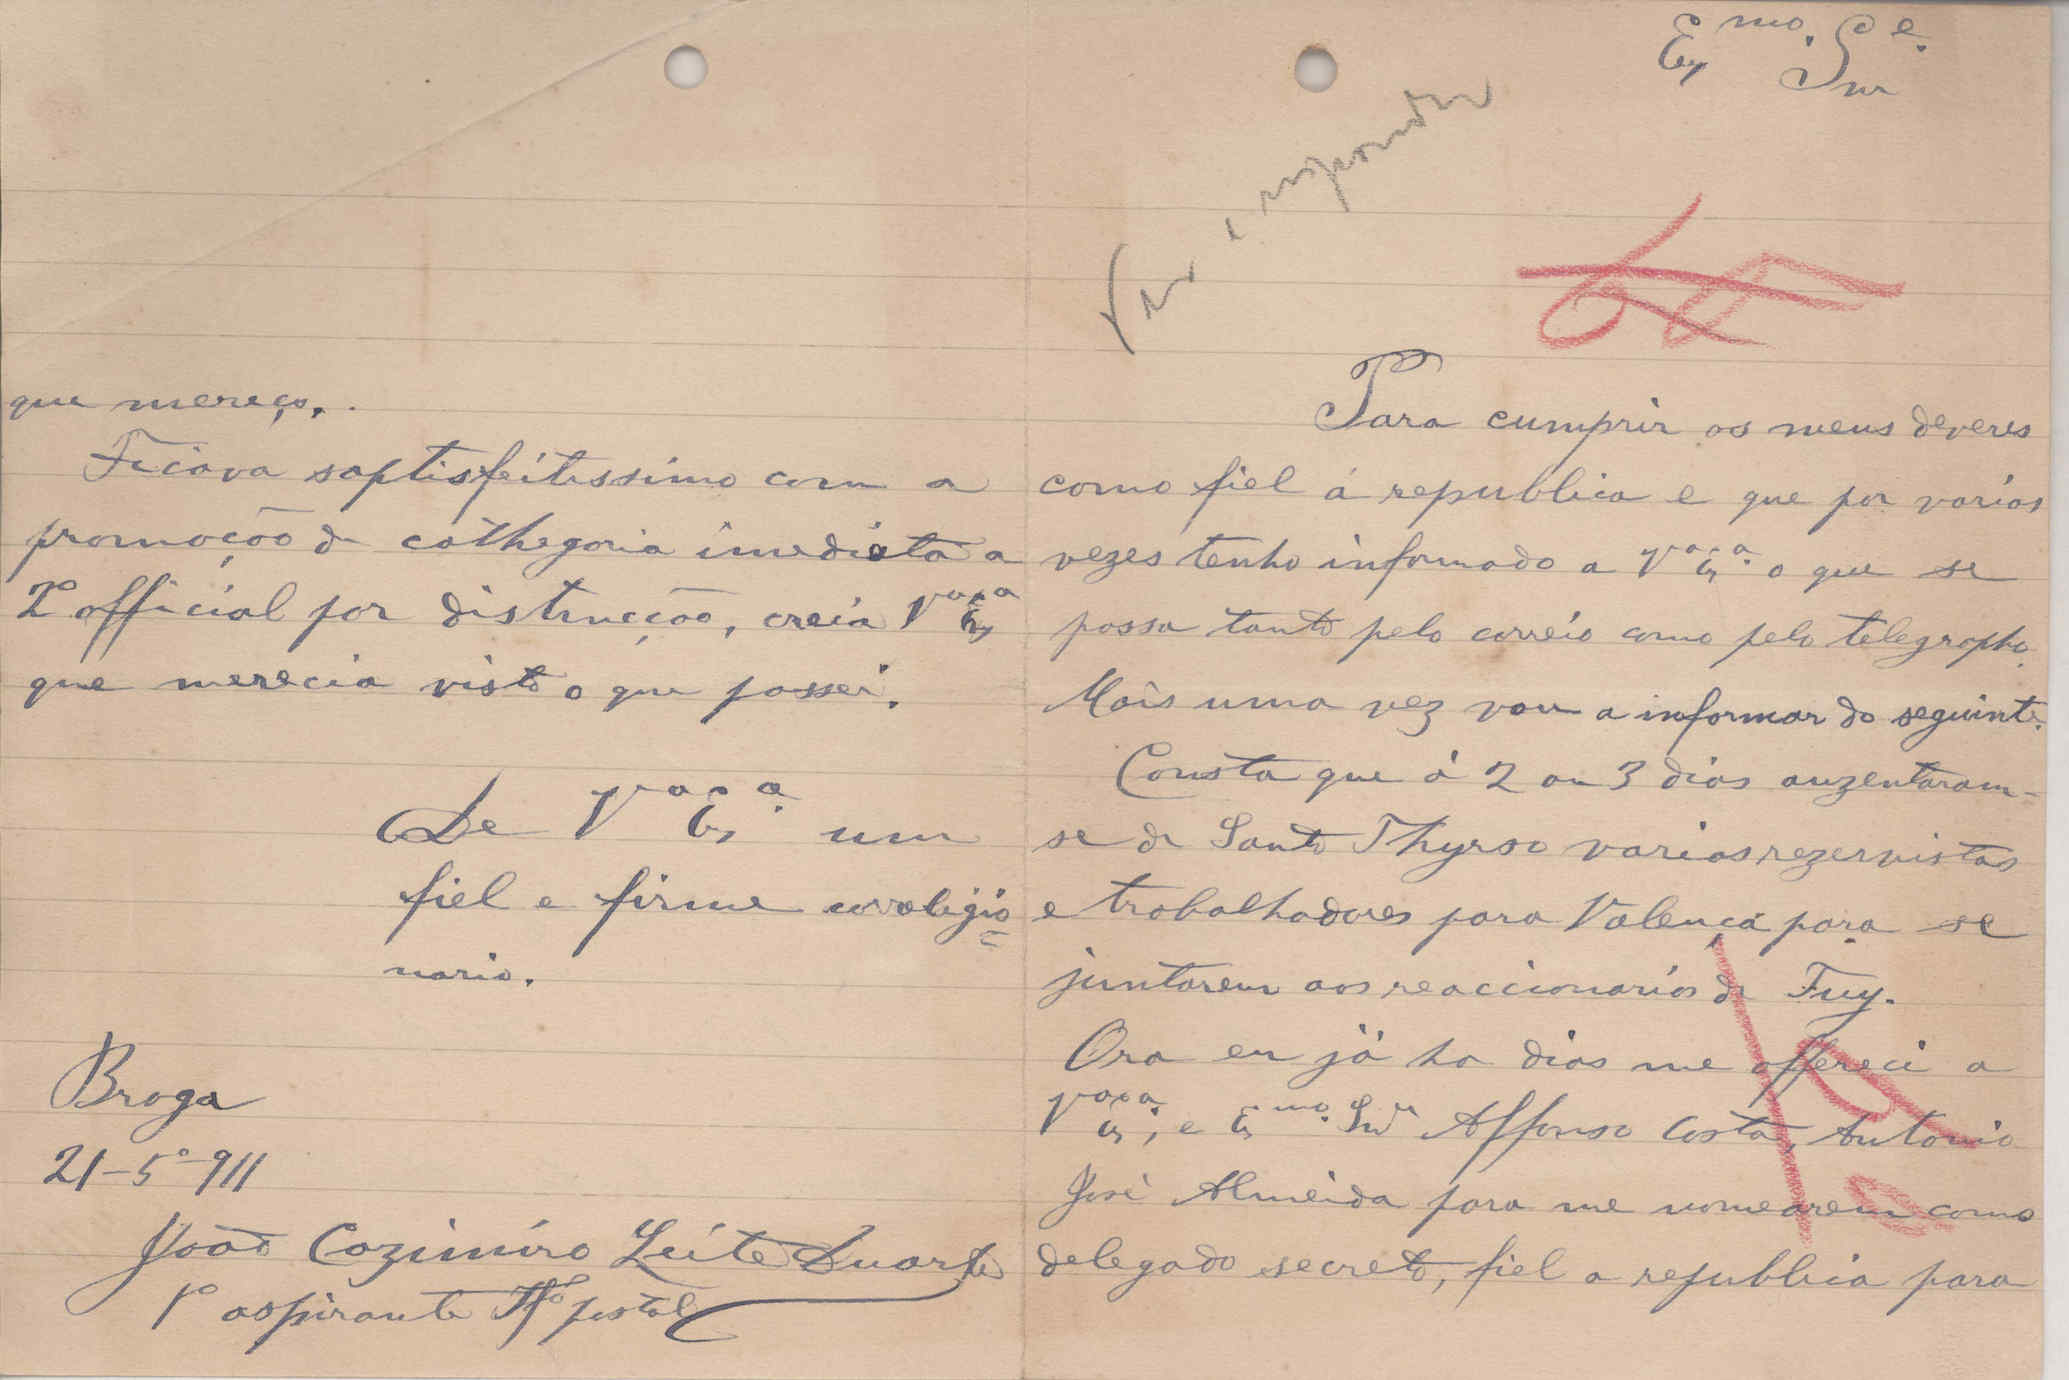 Exmo. Snr
Para cumprir os meus deveres
como fiel á republica e que por varias
vezes tenho informado a Vª Exª. o que se
passa tanto pelo correio como pelo telegrapho.
Mais uma vez vou a informar do seguinte.
Consta que á 2 ou 3 dias auzentaram-
se de Santo Thyrso varios rezervistas
e trabalhadores para Valença para se
juntarem aos reaccionarios de Tuy.
Ora eu já ha dias me offereci a
Vª Exª, e Exmo. Snr Affonso Costa, Antonio
José Almeida para me nomearem como
delegado secreto, fiel a republica para
que mereço.
Ficava saptisfeitissimo com a
promoção de cathegoria imediata a
2º official por distincção, creia Vª Exª
que merecia visto o que passei.
De Vª Exª. um
fiel e firme correligio=
nario.
Braga
21-5º-911
João Cazimiro Leite Duarte
1º aspirante postal